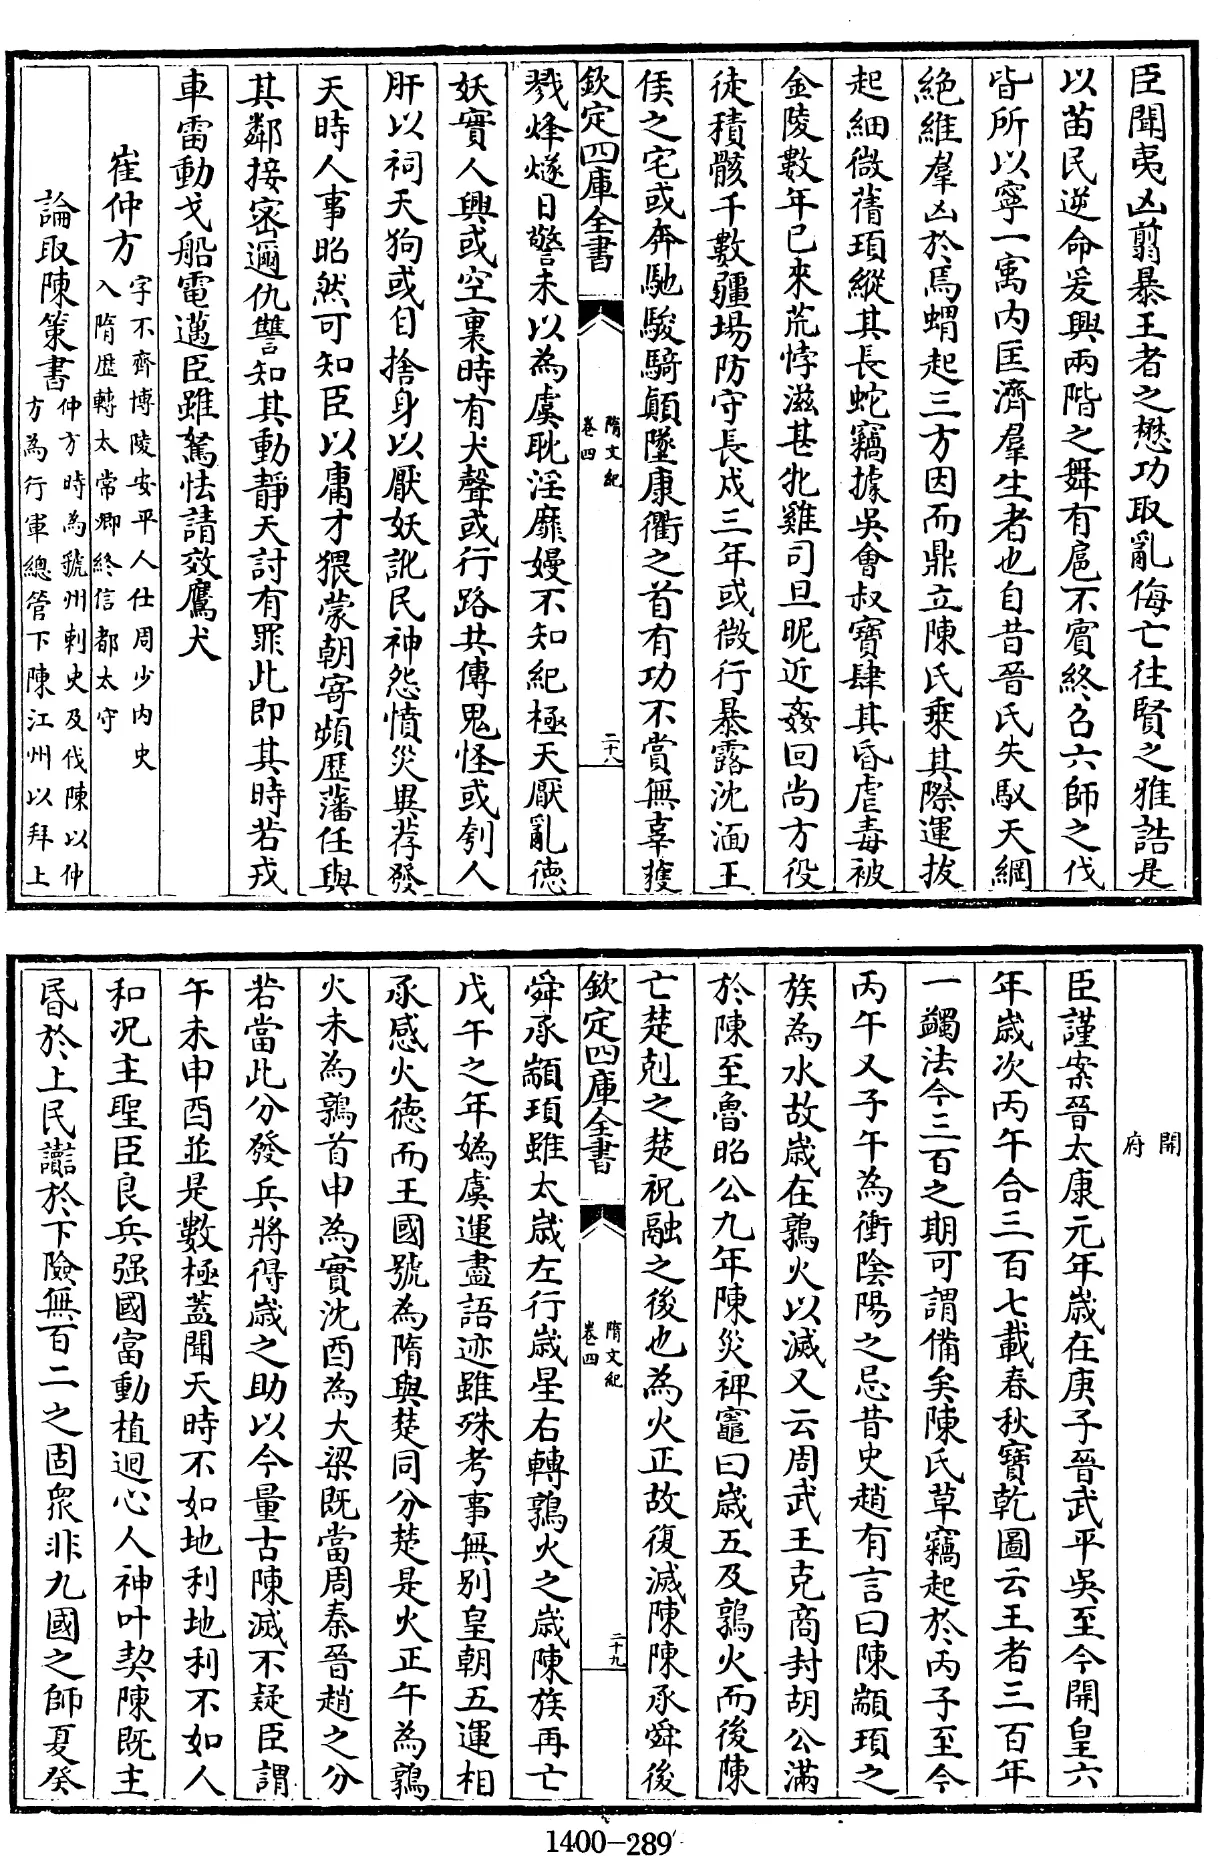 臣聞夷凶翦暴王者之懋功取亂侮亡往賢之雅誥是
以苗民逆命爰興兩階之舞有扈不賓終召六師之伐
皆所以寧一寓内匡濟羣生者也自昔晉氏失馭天網
絶維羣凶於焉蝟起三方因而鼎立陳氏乗其際運拔
起細微蒨頊縱其長蛇竊據吳會叔寶肆其昏虐毒被
金陵數年已來荒悖滋甚牝雞司旦昵近姦回尚方役
徒積骸千數疆場防守長戍三年或微行暴露沈湎王
侯之宅或奔馳駿騎顛墜康衢之首有功不賞無辜獲
欽定四庫全書
隋文紀
卷四
二十八
戮烽燧日警未以為虞耽淫靡嫚不知紀極天厭亂德
妖實人興或空裏時有犬聲或行路共傳鬼怪或刳人
肝以祠天狗或自捨身以厭妖訛民神怨憤災異荐發
天時人事昭然可知臣以庸才猥蒙朝寄頻歴藩任與
其鄰接密邇仇讐知其動靜天討有罪此即其時若戎
車雷動戈船電邁臣雖駑怯請效鷹犬
崔仲方
字不齊博陵安平人仕周少内史
入隋歴轉太常卿終信都太守
論取陳策書
仲方時為虢州刺史及伐陳以仲
方為行軍總管下陳江州以拜上
開
府
臣謹案晉太康元年歲在庚子晉武平吳至今開皇六
年歲次丙午合三百七載春秋寶乾圖云王者三百年
一蠲法今三百之期可謂備矣陳氏草竊起於丙子至今
丙午又子午為衝陰陽之忌昔史趙有言曰陳顓頊之
族為水故歲在鶉火以滅又云周武王克商封胡公滿
於陳至魯昭公九年陳災裨竈曰歲五及鶉火而後陳
亡楚剋之楚祝融之後也為火正故復滅陳陳承舜後
欽定四庫全書
隋文紀
卷四
二十九
舜承顓頊雖太歲左行歲星右轉鶉火之歲陳族再亡
戊午之年媯虞運盡語迹雖殊考事無别皇朝五運相
承感火德而王國號為隋與楚同分楚是火正午為鶉
火未為鶉首申為實沈酉為大梁既當周秦晉趙之分
若當此分發兵將得歲之助以今量古陳滅不疑臣謂
午未申酉並是數極蓋聞天時不如地利地利不如人
和况主聖臣良兵强國富動植迴心人神叶契陳既主
昏於上民讟於下險無百二之固衆非九國之師夏癸
1400-289